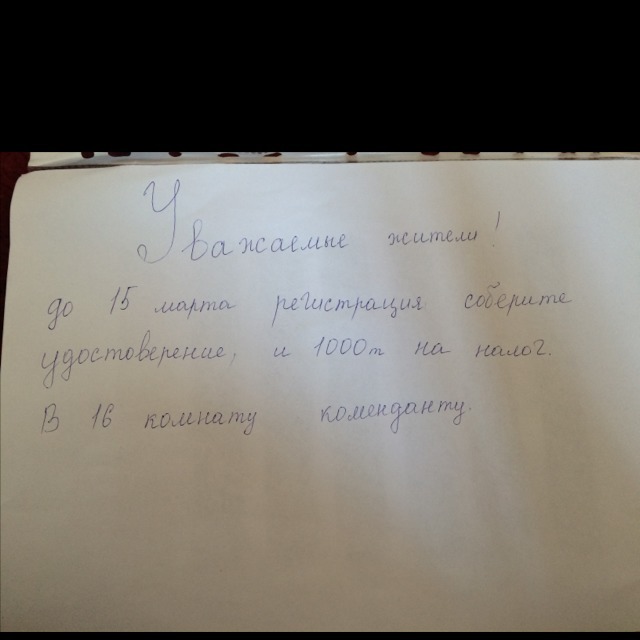 Уважаемые жители!
до 15 марта регистрация соберите
удостоверение, и 1000т на налог.
В 16 комнату коменданту.